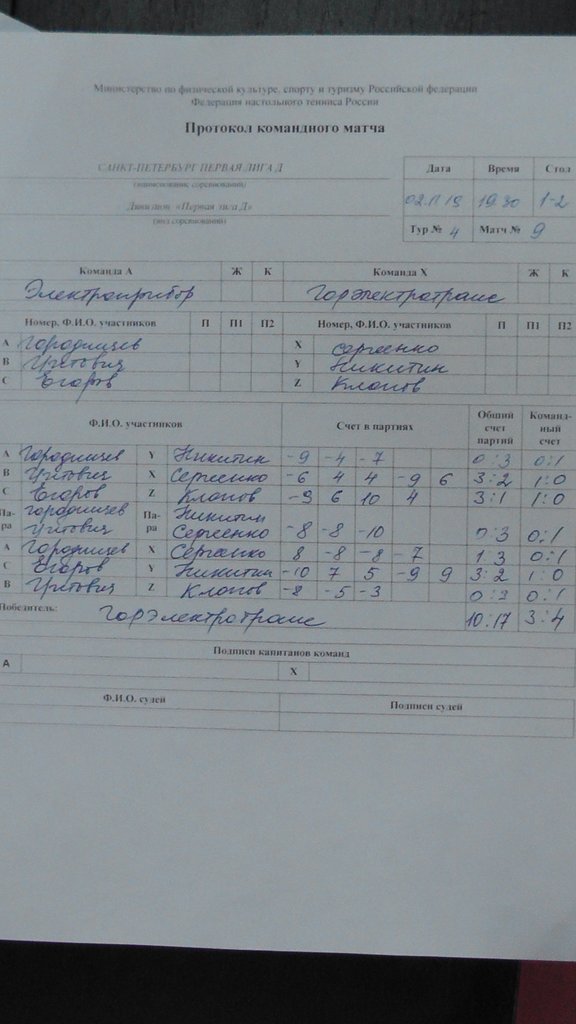 Министерство по физической культуре, спорту и туризму Российской федерации
Федерация настольного тенниса России
Протокол командного матча
САНКТ-ПЕТЕРБУРГ ПЕРВАЯ ЛИГА Д
(наименование соревнований)
Дивизион «Первая лига Д»
(вид соревнований)
Дата Время Стол
02.11.15 19.30 1-2
Тур № 4 Матч № 9
Команда А Ж К Команда Х Ж К
Электроприбор Горэлектротранс
Номер, Ф.И.О. участников П П1 П2 Номер, Ф.И.О. участников П П1 П2
А Городничев X Сергеенко
В Уритович Y Никитин
С Егоров Z Клопов
Ф.И.О. участников Счет в партиях Общий счет партий Командный счет
А Городничев Y Никитин -9 -4 -7 0:3 0:1
В Уритович X Сергеенко -6 4 4 -9 6 3:2 1:0
С Егоров Z Клопов -9 6 10 4 3:1 1:0
Пара Городничев Уритович Пара Никитин Сергеенко -8 -8 -10 0:3 0:1
А Городничев X Сергеенко 8 -8 -8 -7 1:3 0:1
С Егоров Y Никитин -10 7 5 -9 9 3:2 1:0
В Уритович Z Клопов -8 -5 -3 0:3 0:1
Победитель: Горэлектротранс 10:17 3:4
Подписи капитанов команд
А Х
Ф.И.О. судей Подписи судей